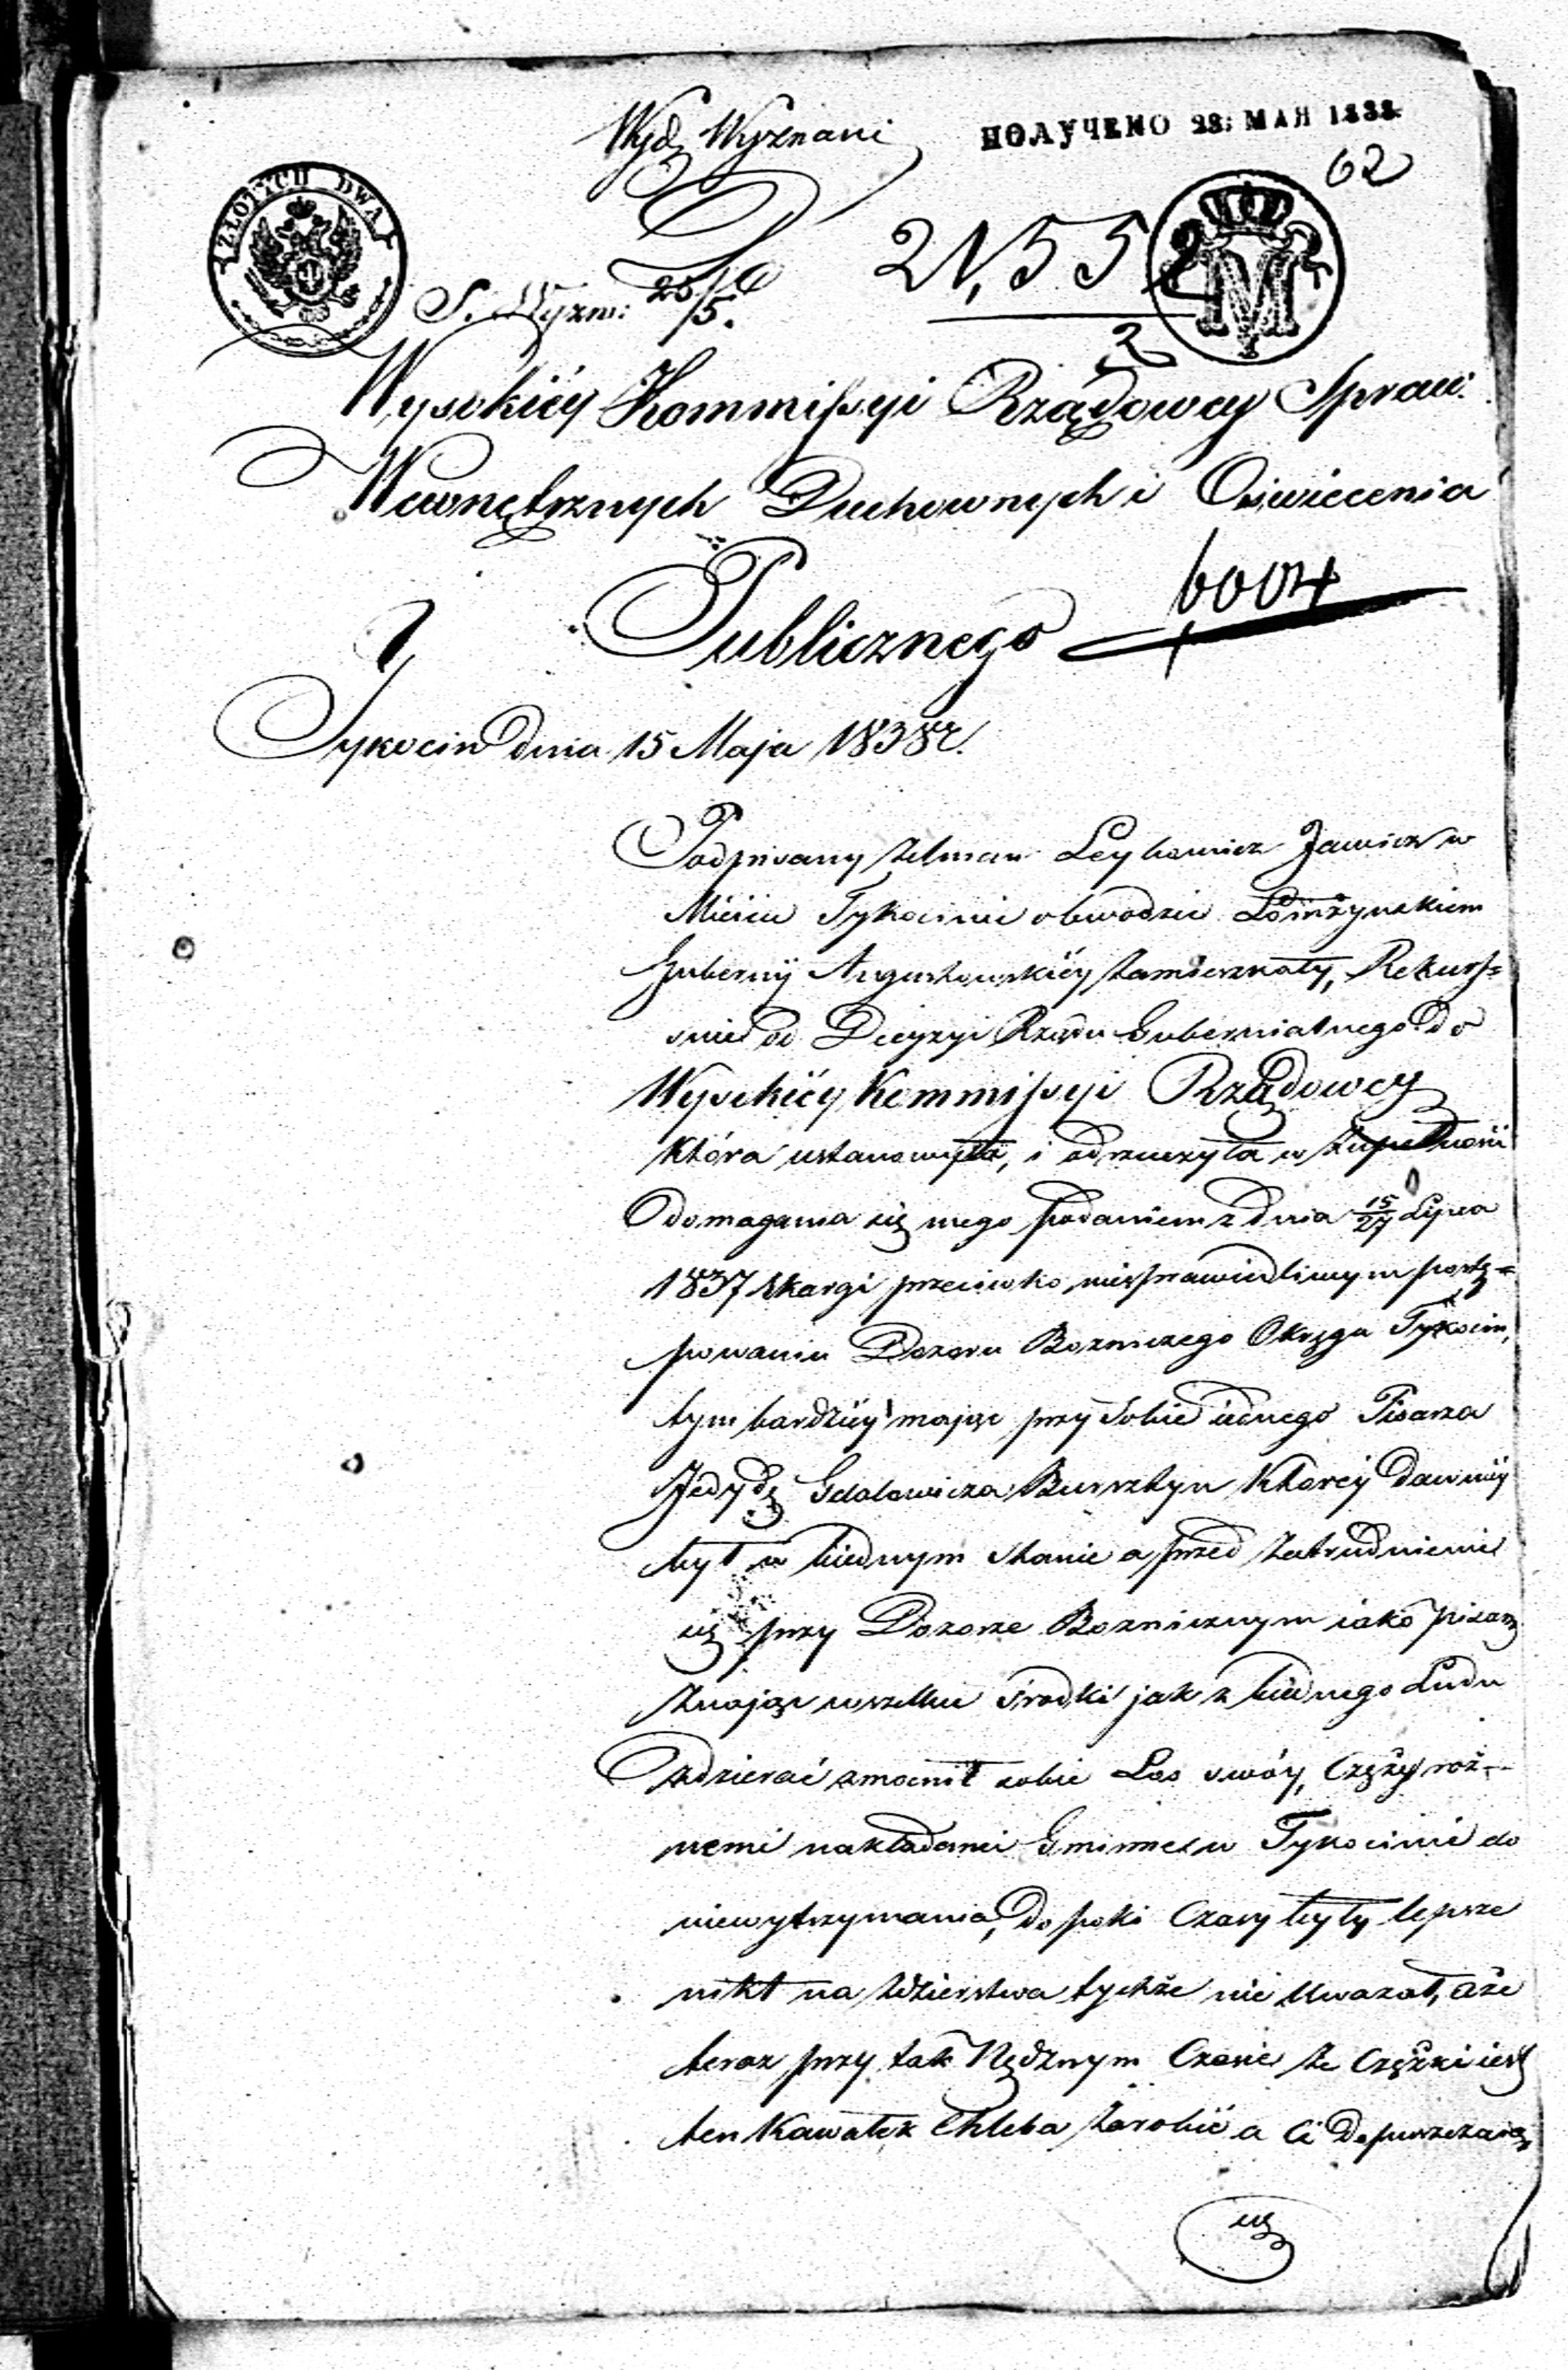 Wydz Wyznani
ПОЛУЧЕНО 28 МАЯ 1838
62
ZŁOTYCH DWA
21,552
S. Wyzn: 26/5.
2
Wysokiéy Kommissyi Rządowey Spraw.
Wewnętrznych Duchownych i Oświecenia
Publicznego
6004
Tykocin dnia 15 Maja 1838 r.
Podpisany Zelman Leybowicz Jawicz w
Mieście Tykocinie obwodzie Łomżynskiem
Gubernij Augustowskiéy zamieszkały, Rekurs=
 od Decyzyi Rządu Gubernialnego do
Wysokiéy Kommissyi Rządowey
która ustanowyła, i odrzuczyła w zupełności
domagania się mego podaniem z dnia 15/27 Lipca
1837 skargi przeciwko niesprawiedliwym postę=
powaniu Dozoru Bozniczego Okręgu Tykocin,
tym bardziéy mając przy sobie iednego Pisarza
Jedydę Gdalowicza Bursztyn któréy dawniéy
był w biednym stanie a przed zatrudnienie
się przy Dozorze Boznicznym iako pisarz
znając wszelkie srodki jak z biednego Ludu
zdzierać zmocnił sobie Los swóy, Częzy roż=
nemi nakładami Gminne w Tykocinie do
niewytrzymania, dopoki Czasy były lepsze
nikt na zdzierstwa tychże nie uwazał, aże
teraz przy tak Nędznym Czasie że Częzki iest
ten kawałek Chleba zarobić a Ci dopuszczaią
się